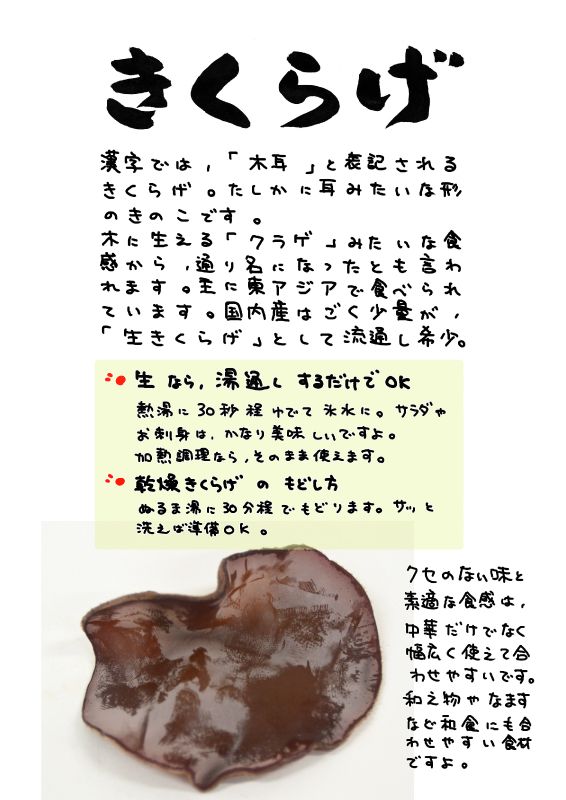 きくらげ
漢字では，「木耳」と表記される
きくらげ。たしかに耳みたいな形
のきのこです。
木に生える「クラゲ」みたいな食
感から，通り名になったとも言わ
れます。主に東アジアで食べられ
ています。国内産はごく少量が，
「生きくらげ」として流通し希少。
生なら，湯通しするだけでOK
熱湯に30秒程ゆでて氷水に。サラダや
お刺身は，かなり美味しいですよ。
加熱調理なら，そのまま使えます。
乾燥きくらげのもどし方
ぬるま湯に30分程でもどります。サッと
洗えば準備OK。
クセのない味と
素適な食感は，
中華だけでなく
幅広く使えて合
わせやすいです。
和え物やなます
など和食にも合
わせやすい食材
ですよ。